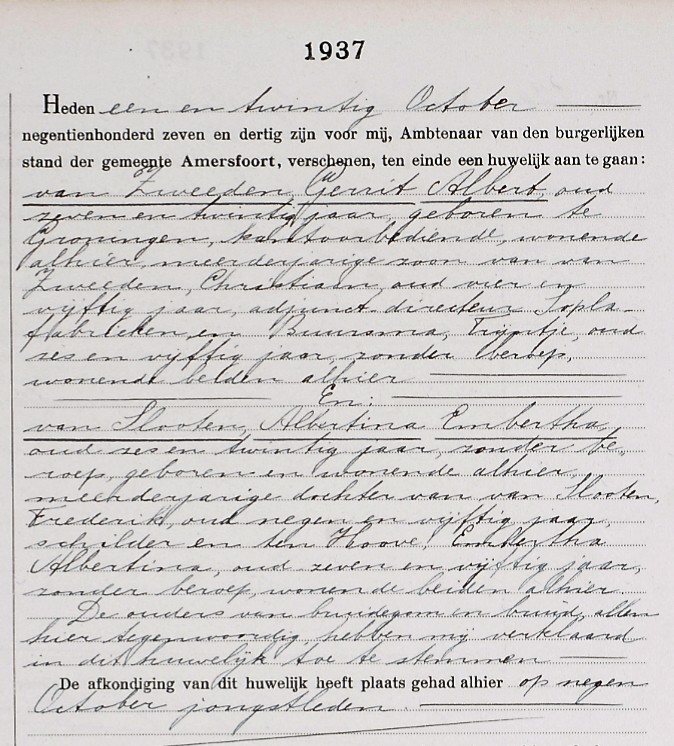 1937
Heden een en twintig October
negentienhonderd zeven en dertig zijn voor mij, Ambtenaar van den burgerlijken
stand der gemeente Amersfoort, verschenen, ten einde een huwelijk aan te gaan:
van Zweeden, (a) Gerrit Albert, oud
zeven en twintig jaar, geboren te
Groningen, kantoorbediende, wonende
alhier, meerderjarige zoon van van
Zweeden, Christiaan, oud vier en
vijftig jaar, adjunct-directeur Sopla-
fabrieken, en Buursma, Trijntje, oud
zes en vijftig jaar, zonder beroep,
wonende beiden alhier
En:
van Slooten, Albertina Embertha,
oud zes en twintig jaar, zonder be-
roep, geboren en wonende alhier,
meerderjarige dochter van van Slooten,
Frederik, oud negen en vijftig jaar,
schilder en ten Hoove, Embertha
Albertina, oud zeven en vijftig jaar,
zonder beroep, wonende beiden alhier.
De ouders van bruidegom en bruid, allen
hier tegenwoordig, hebben mij verklaard
in dit huwelijk toe te stemmen
De afkondiging van dit huwelijk heeft plaats gehad alhier op negen
October jongstleden